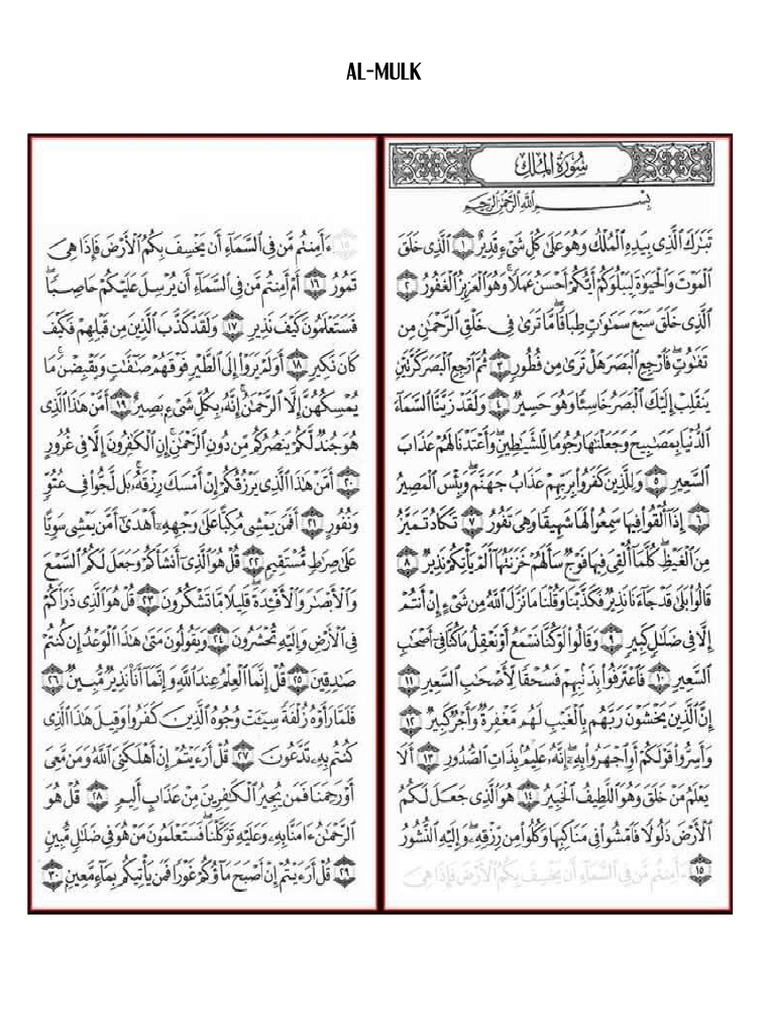 AL-MULK
سُورَةُ المُلْكِ
بِسْمِ اللَّهِ الرَّحْمَٰنِ الرَّحِيمِ
تَبَارَكَ الَّذِي بِيَدِهِ الْمُلْكُ وَهُوَ عَلَىٰ كُلِّ شَيْءٍ قَدِيرٌ ١ الَّذِي خَلَقَ
الْمَوْتَ وَالْحَيَوٰةَ لِيَبْلُوَكُمْ أَيُّكُمْ أَحْسَنُ عَمَلًا ۚ وَهُوَ الْعَزِيزُ الْغَفُورُ ٢
الَّذِي خَلَقَ سَبْعَ سَمَٰوَٰتٍ طِبَاقًا ۖ مَّا تَرَىٰ فِي خَلْقِ الرَّحْمَٰنِ مِن
تَفَٰوُتٍ ۖ فَارْجِعِ الْبَصَرَ هَلْ تَرَىٰ مِن فُطُورٍ ٣ ثُمَّ ارْجِعِ الْبَصَرَ كَرَّتَيْنِ
يَنقَلِبْ إِلَيْكَ الْبَصَرُ خَاسِئًا وَهُوَ حَسِيرٌ ٤ وَلَقَدْ زَيَّنَّا السَّمَاءَ
الدُّنْيَا بِمَصَٰبِيحَ وَجَعَلْنَٰهَا رُجُومًا لِّلشَّيَٰطِينِ ۖ وَأَعْتَدْنَا لَهُمْ عَذَابَ
السَّعِيرِ ٥ وَلِلَّذِينَ كَفَرُوا بِرَبِّهِمْ عَذَابُ جَهَنَّمَ ۖ وَبِئْسَ الْمَصِيرُ
٦ إِذَا أُلْقُوا فِيهَا سَمِعُوا لَهَا شَهِيقًا وَهِيَ تَفُورُ ٧ تَكَادُ تَمَيَّزُ
مِنَ الْغَيْظِ ۖ كُلَّمَا أُلْقِيَ فِيهَا فَوْجٌ سَأَلَهُمْ خَزَنَتُهَا أَلَمْ يَأْتِكُمْ نَذِيرٌ ٨
قَالُوا بَلَىٰ قَدْ جَاءَنَا نَذِيرٌ فَكَذَّبْنَا وَقُلْنَا مَا نَزَّلَ اللَّهُ مِن شَيْءٍ إِنْ أَنتُمْ
إِلَّا فِي ضَلَٰلٍ كَبِيرٍ ٩ وَقَالُوا لَوْ كُنَّا نَسْمَعُ أَوْ نَعْقِلُ مَا كُنَّا فِي أَصْحَٰبِ
السَّعِيرِ ١٠ فَاعْتَرَفُوا بِذَنبِهِمْ فَسُحْقًا لِّأَصْحَٰبِ السَّعِيرِ ١١
إِنَّ الَّذِينَ يَخْشَوْنَ رَبَّهُم بِالْغَيْبِ لَهُم مَّغْفِرَةٌ وَأَجْرٌ كَبِيرٌ ١٢
وَأَسِرُّوا قَوْلَكُمْ أَوِ اجْهَرُوا بِهِ ۖ إِنَّهُ عَلِيمٌ بِذَاتِ الصُّدُورِ ١٣ أَلَا
يَعْلَمُ مَنْ خَلَقَ وَهُوَ اللَّطِيفُ الْخَبِيرُ ١٤ هُوَ الَّذِي جَعَلَ لَكُمُ
الْأَرْضَ ذَلُولًا فَامْشُوا فِي مَنَاكِبِهَا وَكُلُوا مِن رِّزْقِهِ ۖ وَإِلَيْهِ النُّشُورُ
١٥ ءَأَمِنتُم مَّن فِي السَّمَاءِ أَن يَخْسِفَ بِكُمُ الْأَرْضَ فَإِذَا هِيَ
١٥ ءَأَمِنتُم مَّن فِي السَّمَاءِ أَن يَخْسِفَ بِكُمُ الْأَرْضَ فَإِذَا هِيَ
تَمُورُ ١٦ أَمْ أَمِنتُم مَّن فِي السَّمَاءِ أَن يُرْسِلَ عَلَيْكُمْ حَاصِبًا ۖ
فَسَتَعْلَمُونَ كَيْفَ نَذِيرِ ١٧ وَلَقَدْ كَذَّبَ الَّذِينَ مِن قَبْلِهِمْ فَكَيْفَ
كَانَ نَكِيرِ ١٨ أَوَلَمْ يَرَوْا إِلَى الطَّيْرِ فَوْقَهُمْ صَٰفَّٰتٍ وَيَقْبِضْنَ ۚ مَا
يُمْسِكُهُنَّ إِلَّا الرَّحْمَٰنُ ۚ إِنَّهُ بِكُلِّ شَيْءٍ بَصِيرٌ ١٩ أَمَّنْ هَٰذَا الَّذِي
هُوَ جُندٌ لَّكُمْ يَنصُرُكُم مِّن دُونِ الرَّحْمَٰنِ ۚ إِنِ الْكَٰفِرُونَ إِلَّا فِي غُرُورٍ
٢٠ أَمَّنْ هَٰذَا الَّذِي يَرْزُقُكُمْ إِنْ أَمْسَكَ رِزْقَهُ ۚ بَل لَّجُّوا فِي عُتُوٍّ
وَنُفُورٍ ٢١ أَفَمَن يَمْشِي مُكِبًّا عَلَىٰ وَجْهِهِ أَهْدَىٰ أَمَّن يَمْشِي سَوِيًّا
عَلَىٰ صِرَٰطٍ مُّسْتَقِيمٍ ٢٢ قُلْ هُوَ الَّذِي أَنشَأَكُمْ وَجَعَلَ لَكُمُ السَّمْعَ
وَالْأَبْصَٰرَ وَالْأَفْئِدَةَ ۖ قَلِيلًا مَّا تَشْكُرُونَ ٢٣ قُلْ هُوَ الَّذِي ذَرَأَكُمْ
فِي الْأَرْضِ وَإِلَيْهِ تُحْشَرُونَ ٢٤ وَيَقُولُونَ مَتَىٰ هَٰذَا الْوَعْدُ إِن كُنتُمْ
صَٰدِقِينَ ٢٥ قُلْ إِنَّمَا الْعِلْمُ عِندَ اللَّهِ وَإِنَّمَا أَنَا نَذِيرٌ مُّبِينٌ ٢٦
فَلَمَّا رَأَوْهُ زُلْفَةً سِيئَتْ وُجُوهُ الَّذِينَ كَفَرُوا وَقِيلَ هَٰذَا الَّذِي
كُنتُم بِهِ تَدَّعُونَ ٢٧ قُلْ أَرَءَيْتُمْ إِنْ أَهْلَكَنِيَ اللَّهُ وَمَن مَّعِيَ
أَوْ رَحِمَنَا فَمَن يُجِيرُ الْكَٰفِرِينَ مِنْ عَذَابٍ أَلِيمٍ ٢٨ قُلْ هُوَ
الرَّحْمَٰنُ ءَامَنَّا بِهِ وَعَلَيْهِ تَوَكَّلْنَا ۖ فَسَتَعْلَمُونَ مَنْ هُوَ فِي ضَلَٰلٍ مُّبِينٍ
٢٩ قُلْ أَرَءَيْتُمْ إِنْ أَصْبَحَ مَاؤُكُمْ غَوْرًا فَمَن يَأْتِيكُم بِمَاءٍ مَّعِينٍ ٣٠